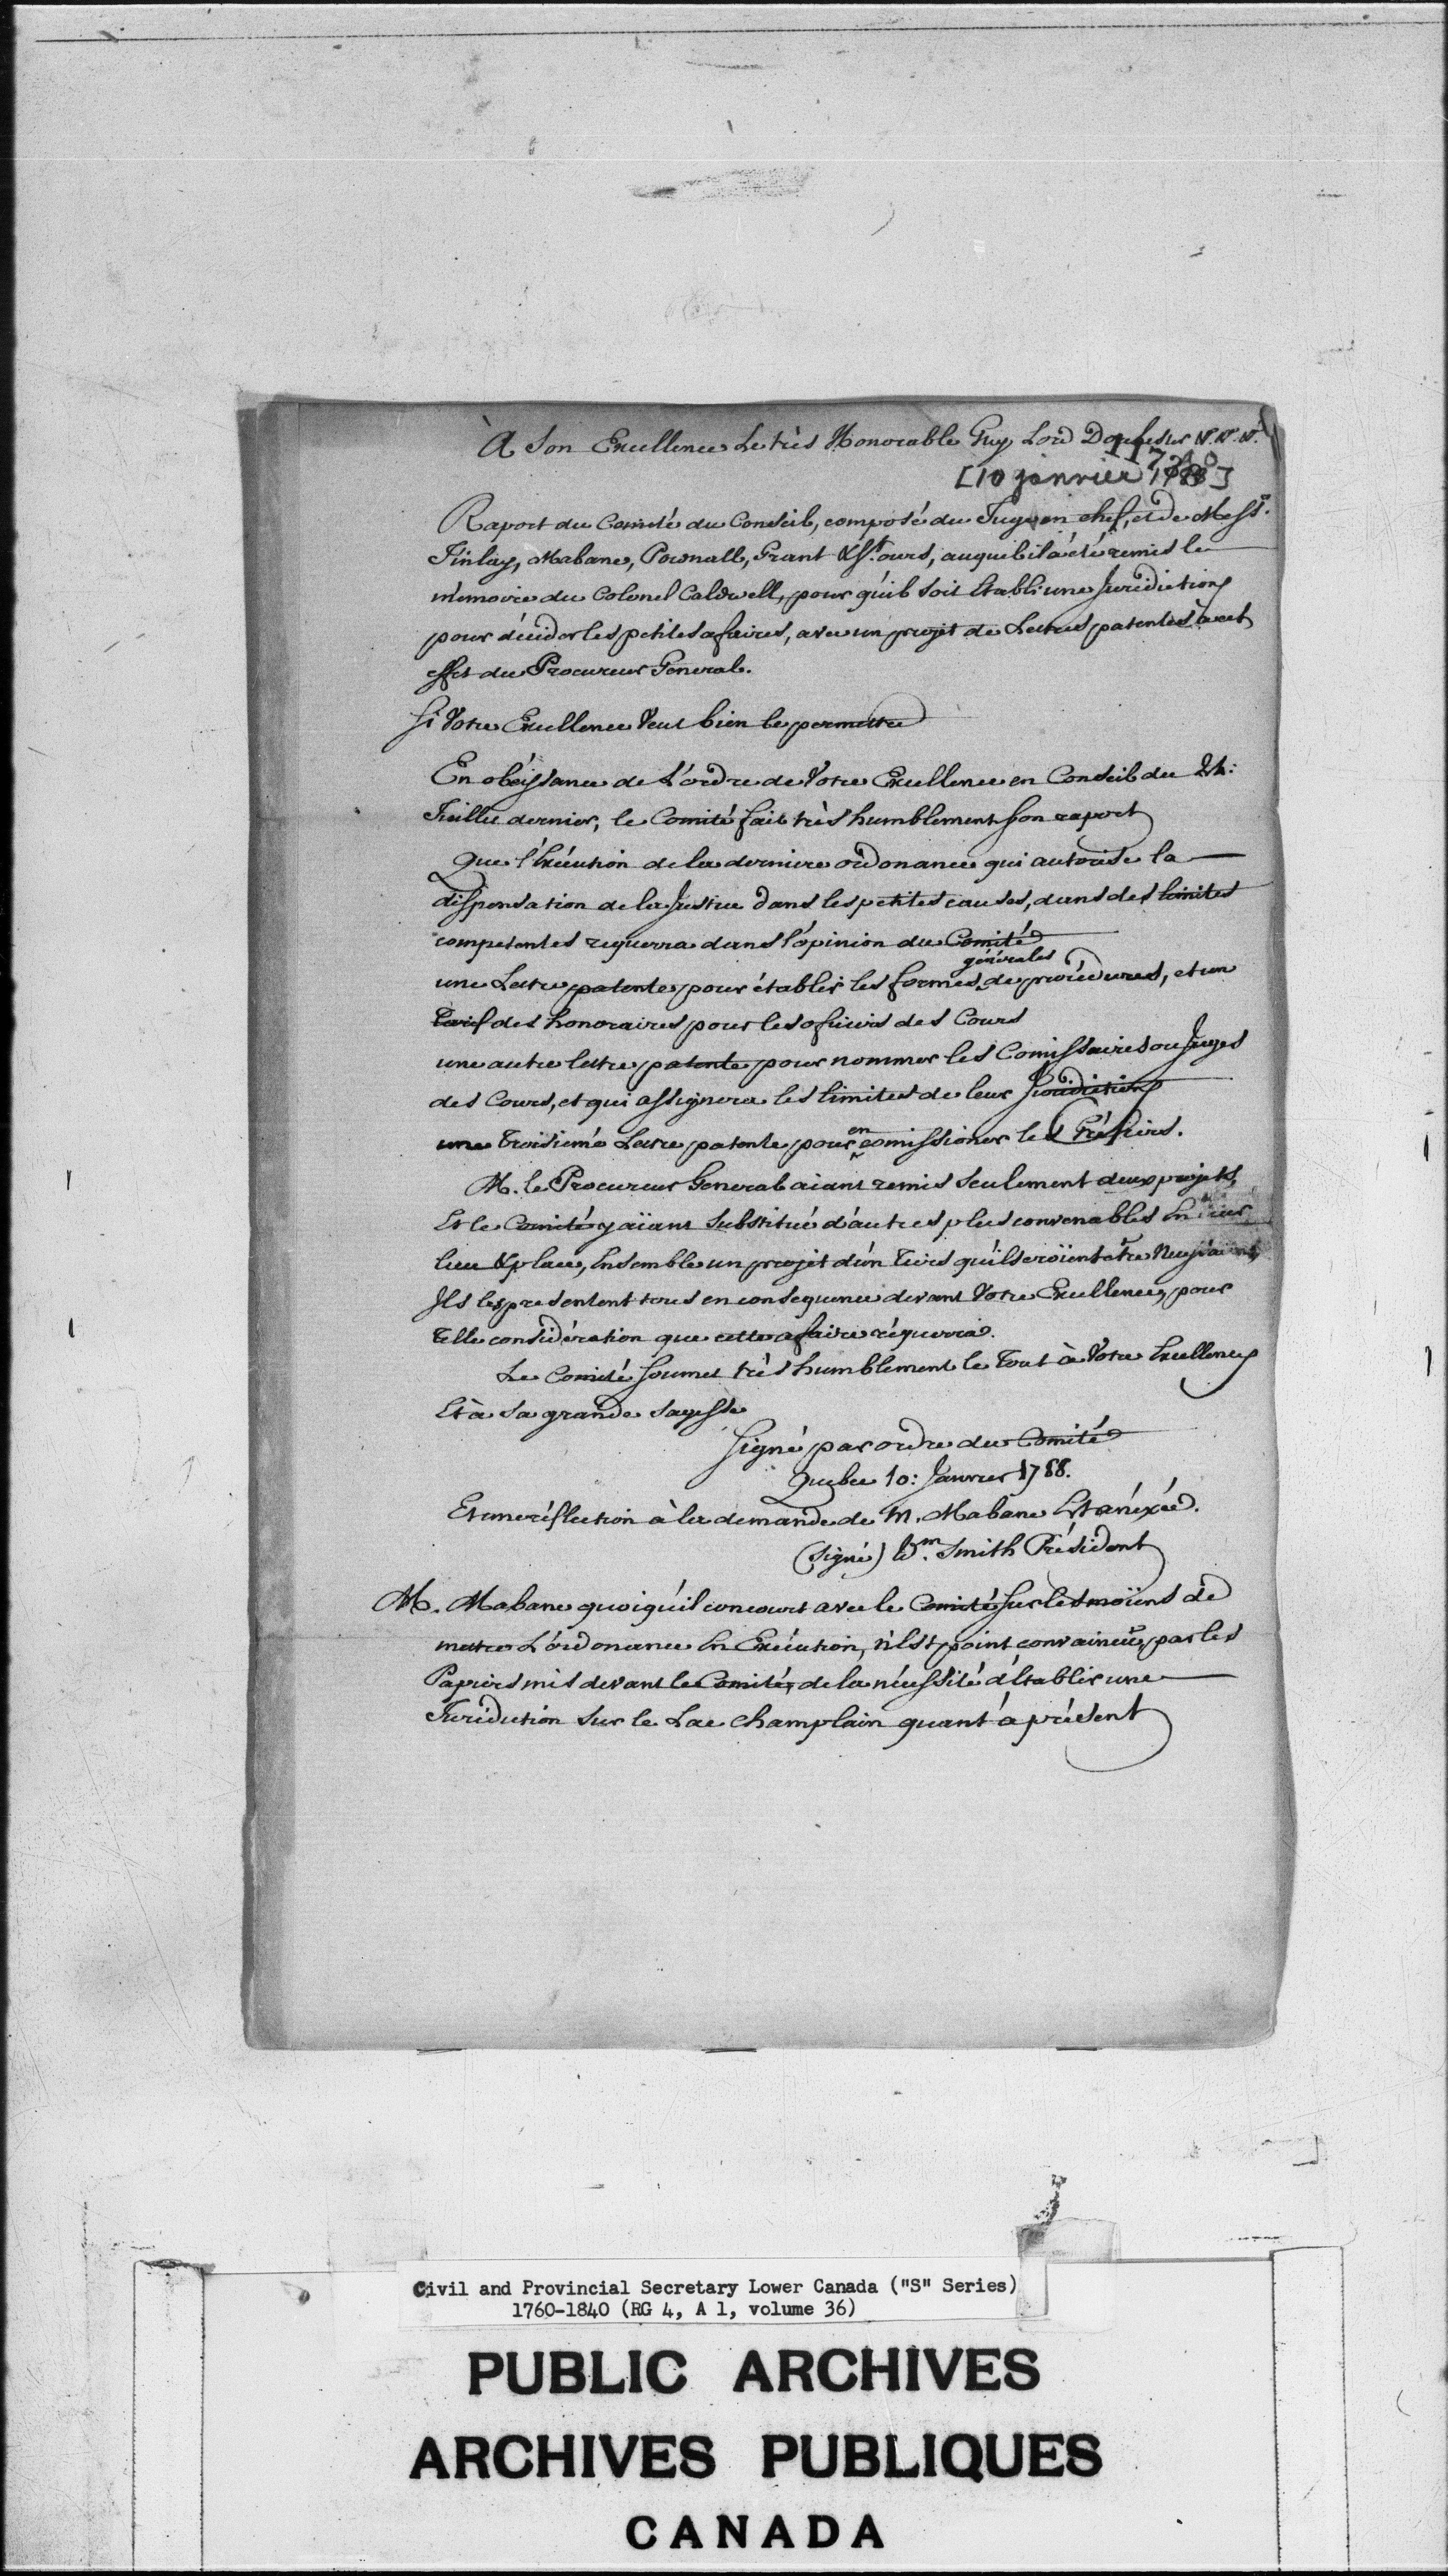 À Son Excellence Le très Honorable Guy Lord Dorchester &c. &c. &c.
11740
[10 janvier 1788]
Raport du Comité du Conseil, composé du Juge en chef, et de Messrs.
Finlay, Mabane, Pownall, Grant & St. ours, auquel il a été remis le
mémoire du Colonel Caldwell, pour qu'il soit Etabli une Juridiction
pour décider les petites afaires, avec un projet de Lettres patentes à cet
effet du Procureur General.
Si Votre Excellence Veut bien le permettre
En obéissance de L'ordre de Votre Excellence en Conseil du 24:
Juillet dernier, le Comité fait très humblement son raport
Que l'Exécution de la derniere ordonance qui autorise la
dispensation de la Justice dans les petites causes, dans des limites
competentes requerra dans l'opinion du Comité
une Lettre patente pour établir les formes générales de procédures, et un
Tarif des honoraires pour les oficiers des Cours
une autre lettre patente pour nommer les Comissaires ou Juges
des Cours, et qui assignera les limites de leur Juridiction
une troisieme Lettre patente pour en comissioner les Gréfiers.
M. le Procureur General aiant remis seulement deux projets,
Et le Comité y aïant substitué d'autres plus convenables En leur
lieu & place, Ensemble un projet d'un tiers qu'ils croïent être necessaire,
Ils les presentent tous en consequence devant Votre Excellence, pour
telle considération que cette afaire réquerra.
Le Comité soumet très humblement le Tout à Votre Excellence
Et à sa grande sagesse
Signé par ordre du Comité
Quebec 10: Janvier 1788.
Et une réflection à la demande de M. Mabane Est anéxée.
(signé) Wm. Smith Président
M. Mabane quoiqu'il concourt avec le Comité sur les moïens de
mettre L'ordonance En Exécution, n'Est point convaincu, par les
Papiers mis devant le Comité, de la nécessité d'Etablir une
Juridiction sur le Lac Champlain quant à présent
Civil and Provincial Secretary Lower Canada ("S" Series)
1760-1840 (RG 4, A 1, volume 36)
PUBLIC ARCHIVES
ARCHIVES PUBLIQUES
CANADA